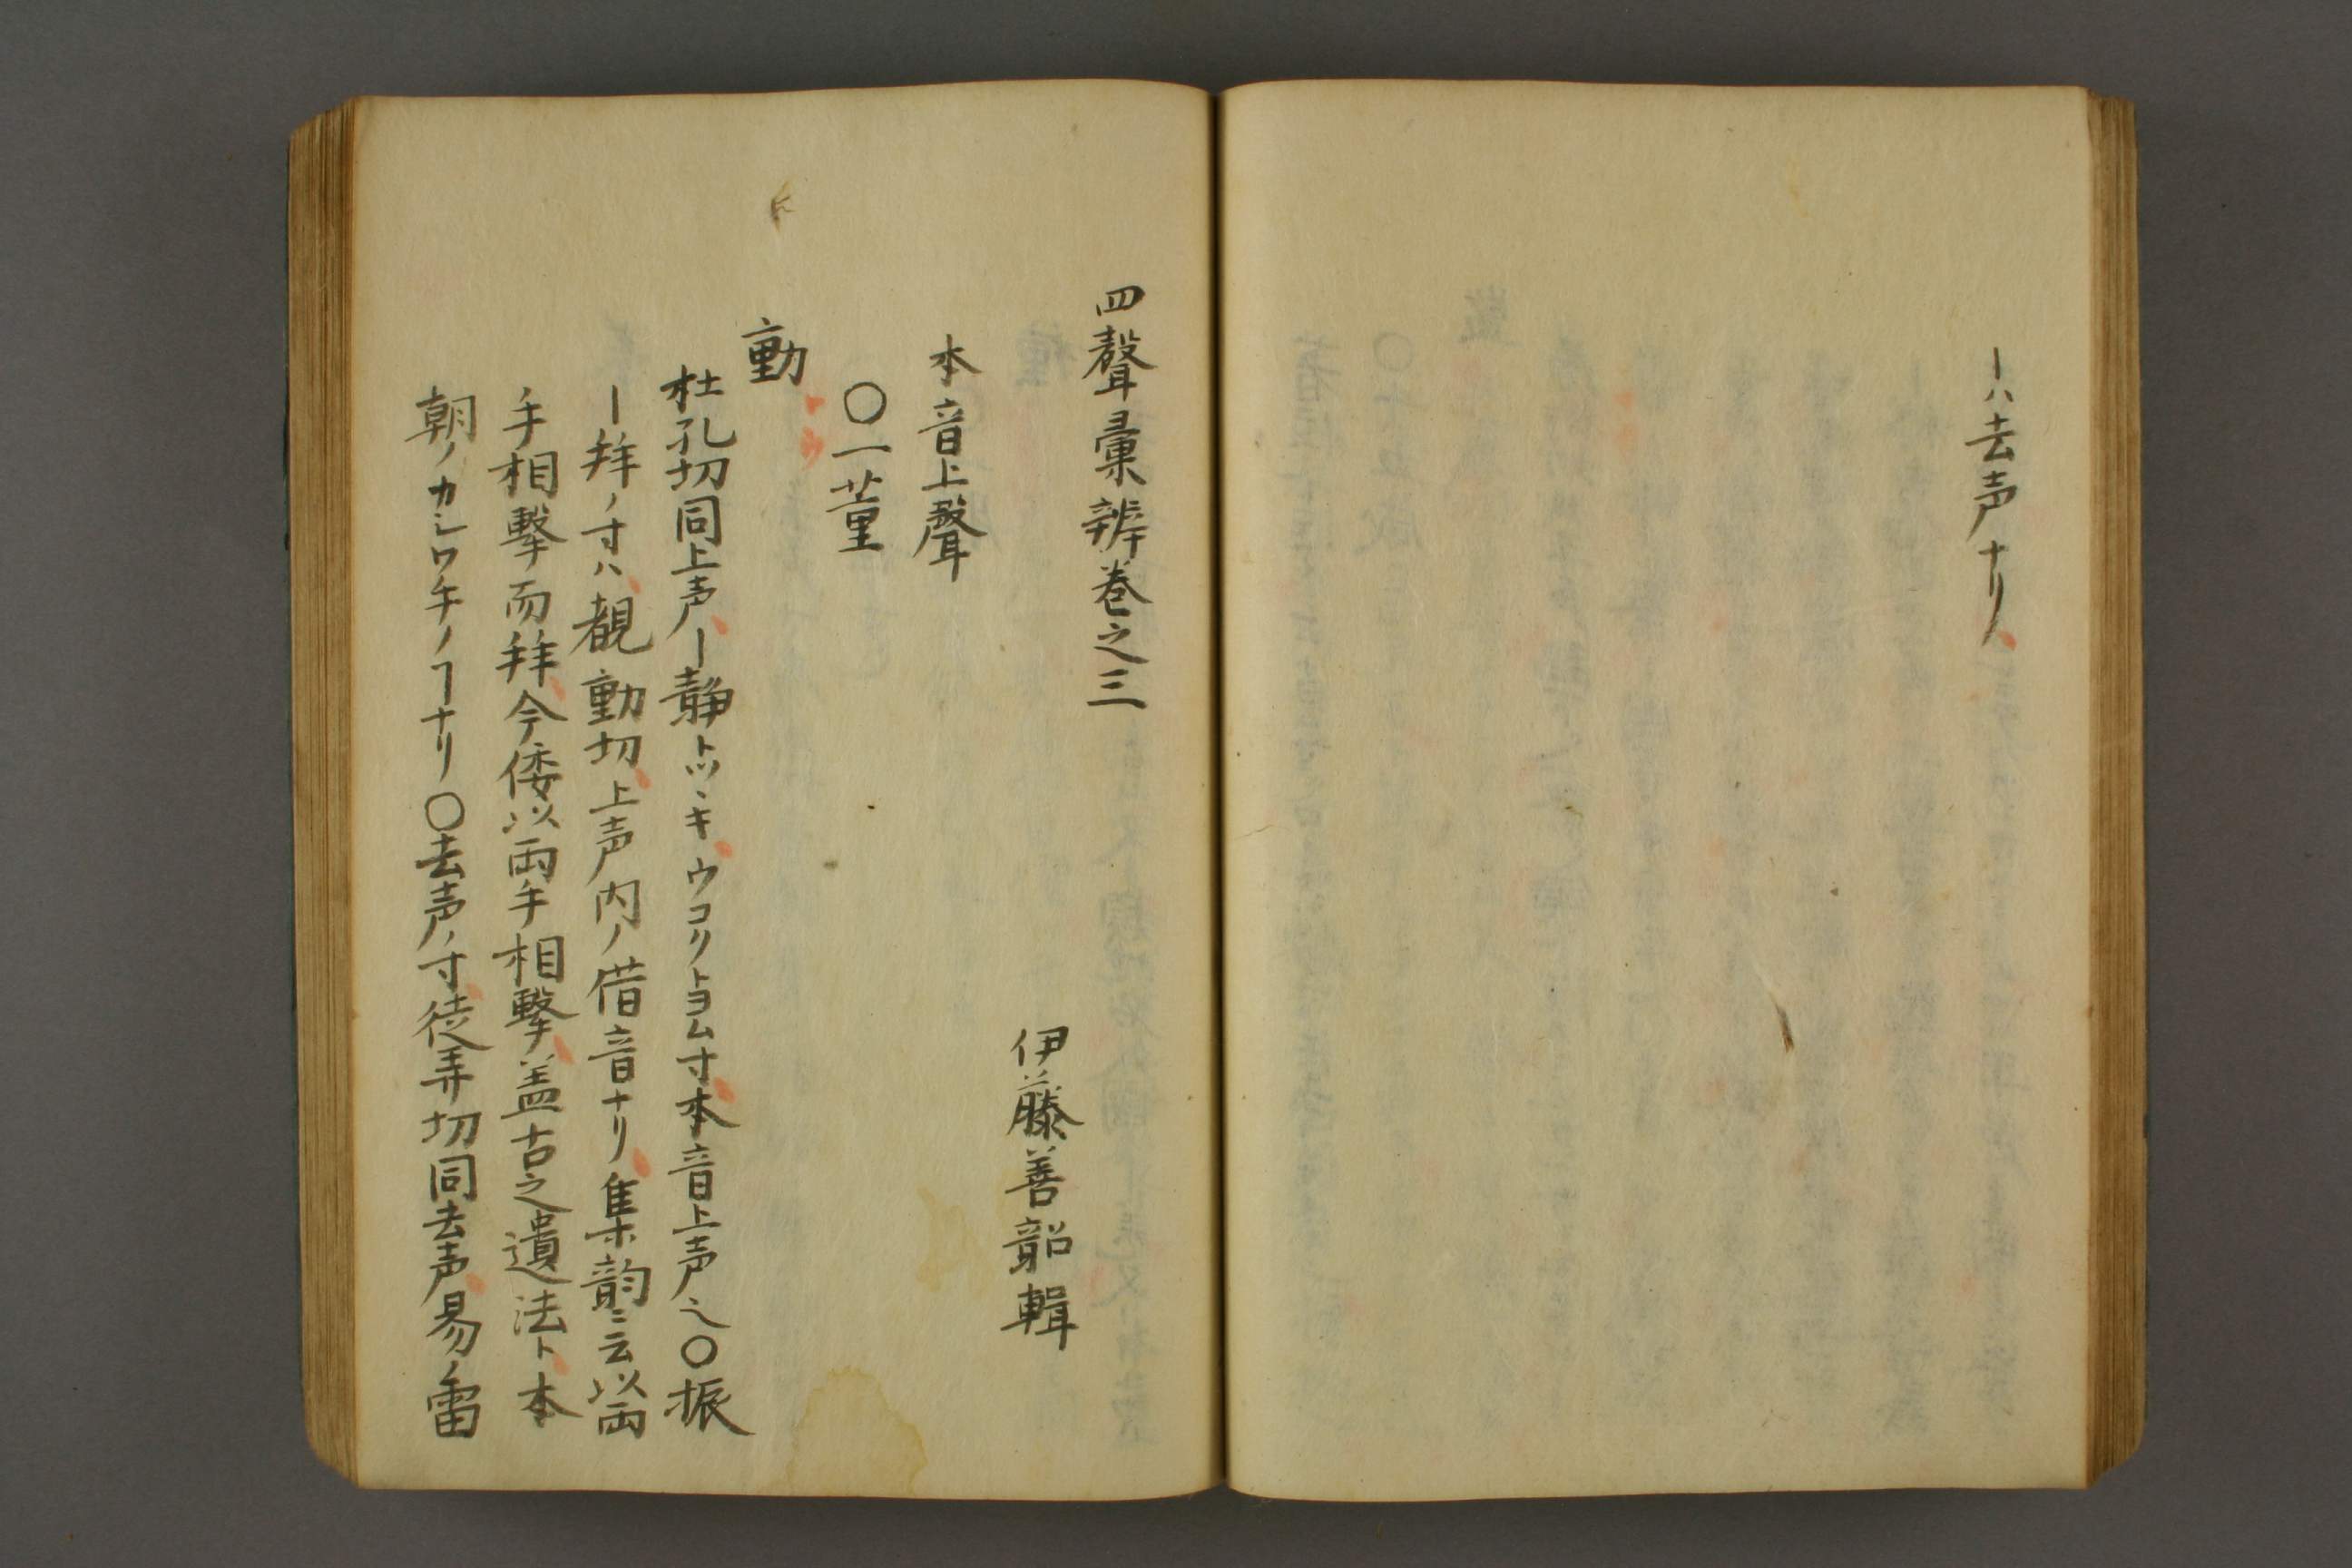 ーハ去声ナリ
四聲彙辨巻之三
伊藤善韶輯
本音上聲
〇一董
動
杜孔切同上声ー静トツヽキウコクトヨム寸本音上声〇振
ー拜ノ寸ハ覩動切上声内ノ借音ナリ集韵ニ云以両
手相撃而拜今倭以両手相撃盖古之遺法ト本
朝ノカシワ手ノヿナリ〇去声ノ寸徒弄切同去声易ノ雷